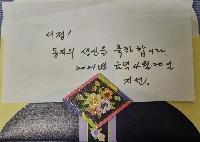 서정!
동지의 생신을 축하합니다
년 4월 20일
지선.